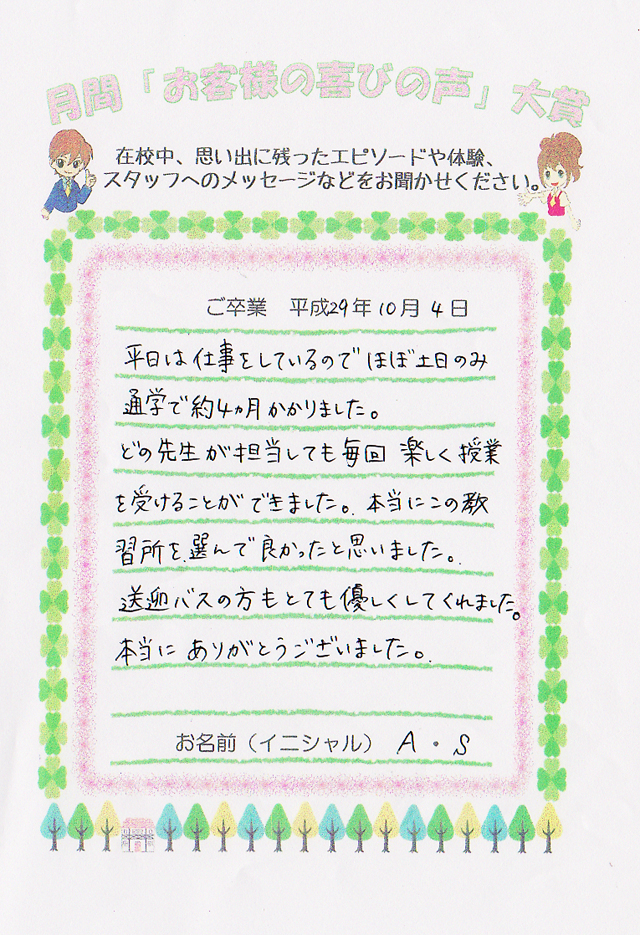 月間「お客様の喜びの声」大賞
在校中、思い出に残ったエピソードや体験、
スタッフへのメッセージなどをお聞かせください。
ご卒業 平成29年10月4日
平日は仕事をしているのでほぼ土日のみ
通学で約4ヵ月かかりました。
どの先生が担当しても毎回 楽しく授業
を受けることができました。本当にこの教
習所を選んで良かったと思いました。
送迎バスの方もとても優しくしてくれました。
本当に ありがとうございました。
お名前（イニシャル） A・S